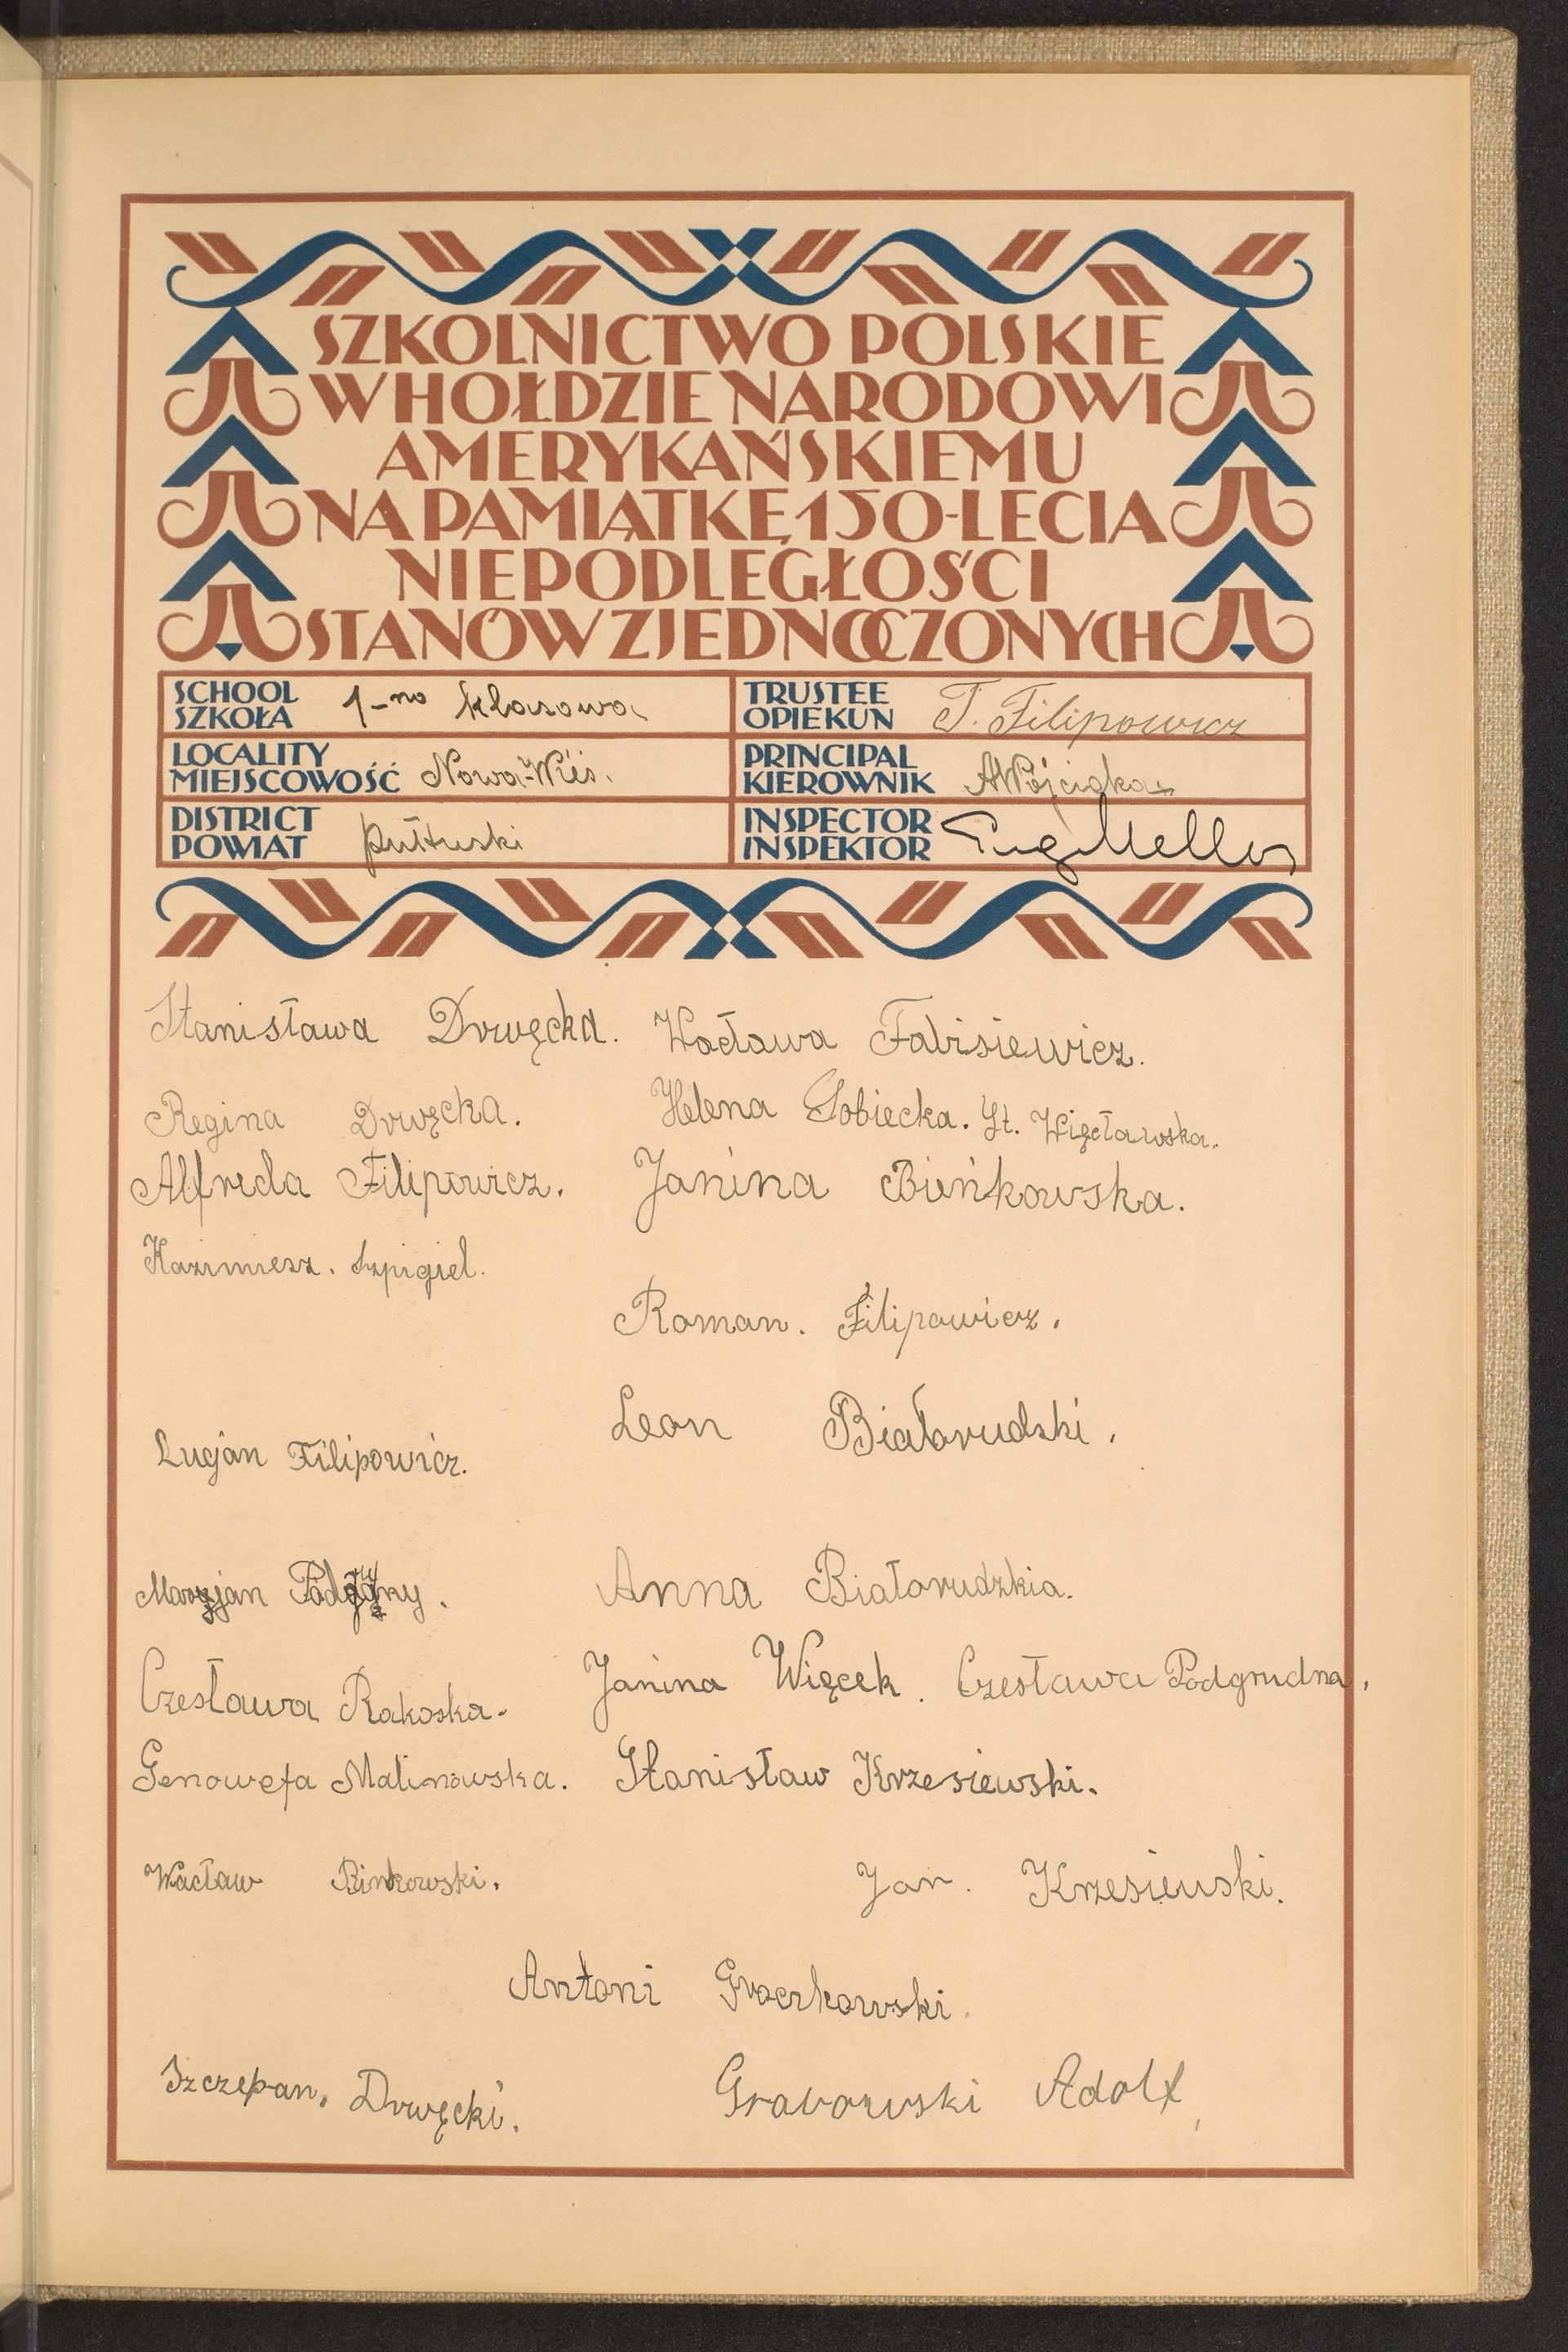 SZKOLNICTWO POLSKIE
W HOŁDZIE NARODOWI
AMERYKAŃSKIEMU
NA PAMIĄTKĘ 150-LECIA
NIEPODLEGŁOŚCI
STANÓW ZJEDNOCZONYCH
SCHOOL
SZKOŁA 1-no klasowa
TRUSTEE
OPIEKUN T. Filipowicz
LOCALITY
MIEJSCOWOŚĆ Nowa-Wieś.
PRINCIPAL
KIEROWNIK
DISTRICT
POWIAT pułtuski
INSPECTOR
INSPEKTOR
Stanisława Drwęcka. Wacława Fabisiewicz.
Regina Drwęcka. Helena Sobiecka. St. Więcławska.
Alfreda Filipowicz. Janina Bieńkowska.
Kazimiesz. Szpigiel.
Roman. Filipowicz.
Leon Białorudski.
Lucjan Filipowicz.
Anna Białorudzkia.
Janina Więcek. Czesława Podgrudna.
Czesława Rakoska.
Genowefa Malinowska. Stanisław Krzesiewski.
Wacław Binkowski. Jan. Krzesiewski.
Antoni
Szczepan. Drwęcki. Grabowski Adolf